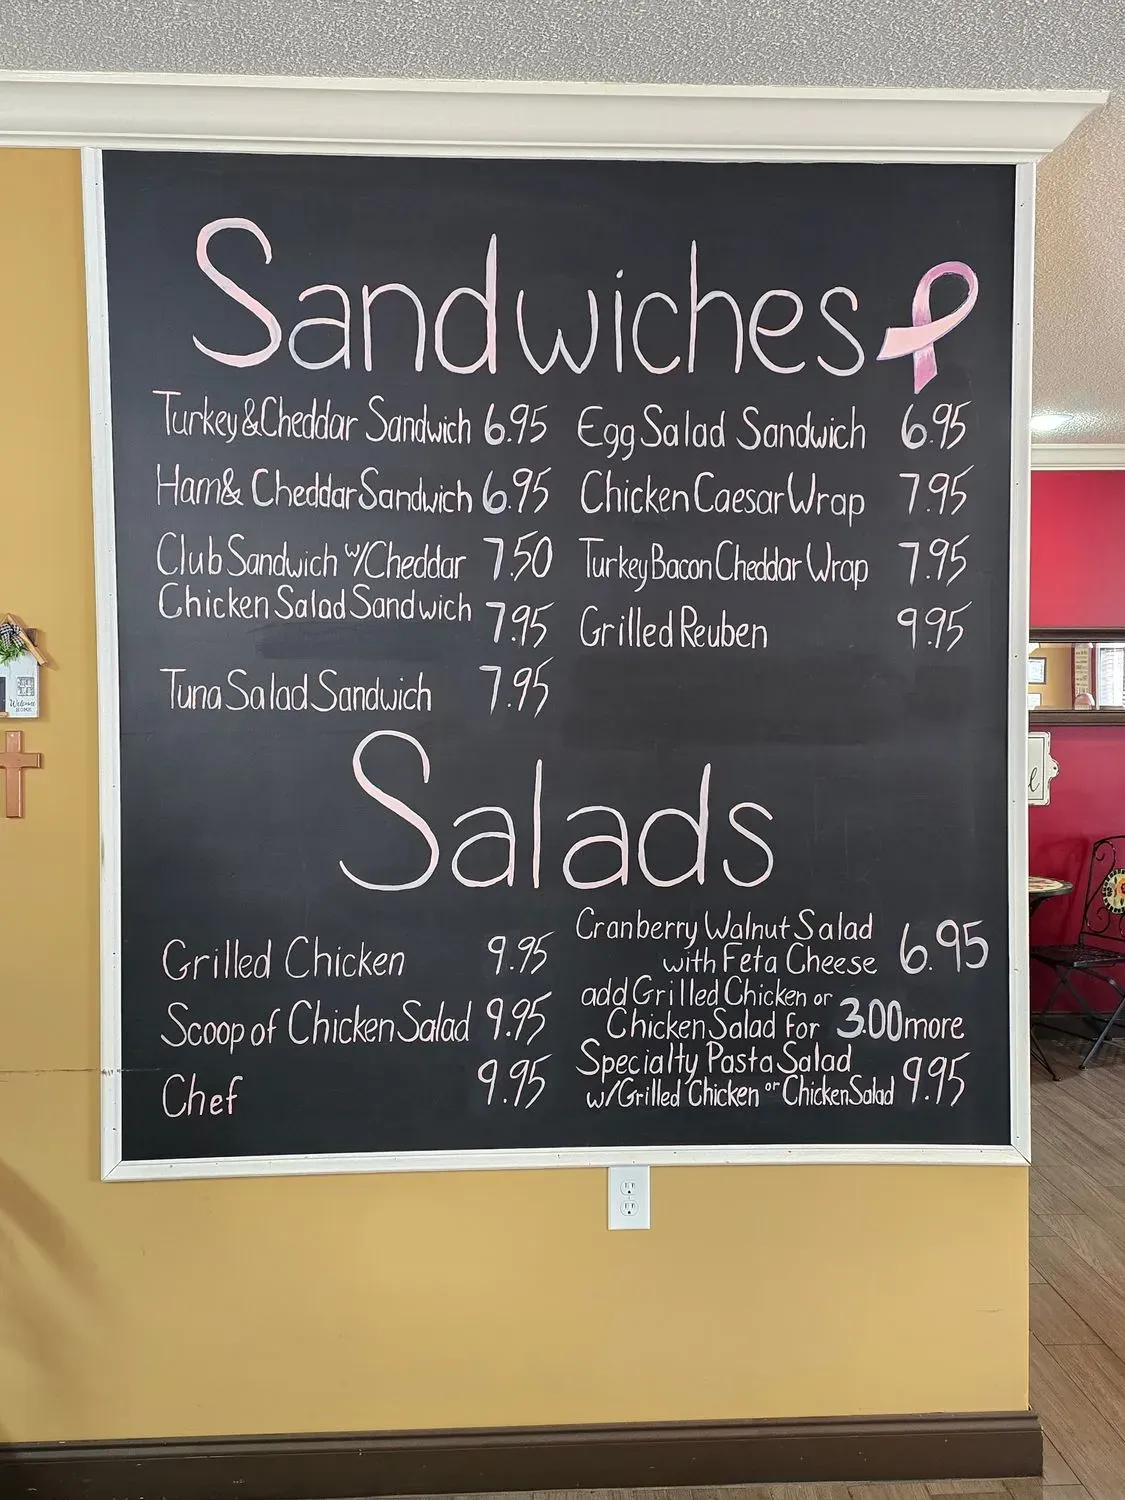 Sandwiches
Turkey & Cheddar Sandwich 6.95
Ham & Cheddar Sandwich 6.95
Club Sandwich w/Cheddar 7.50
Chicken Salad Sandwich 7.95
Tuna Salad Sandwich 7.95
Egg Salad Sandwich 6.95
Chicken Caesar Wrap 7.95
Turkey Bacon Cheddar Wrap 7.95
Grilled Reuben 9.95
Salads
Grilled Chicken 9.95
Scoop of Chicken Salad 9.95
Chef 9.95
Cranberry Walnut Salad
with Feta Cheese 6.95
add Grilled Chicken or
Chicken Salad for 3.00 more
Specialty Pasta Salad
w/Grilled Chicken or Chicken Salad 9.95
Welcome